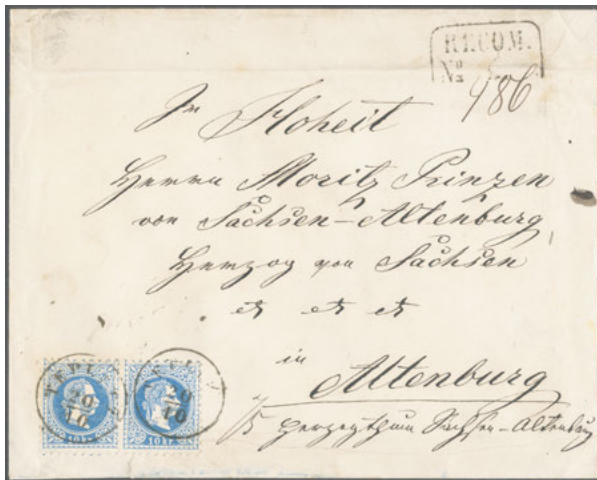 RECOM.
No 486
Sr Hoheit
Herrn Moritz Prinzen
von Sachsen-Altenburg,
Herzog von Sachsen
etc etc etc
in
Altenburg
Herzogthum Sachsen-Altenburg
20
10
20
10
10 KR.
10 KR.